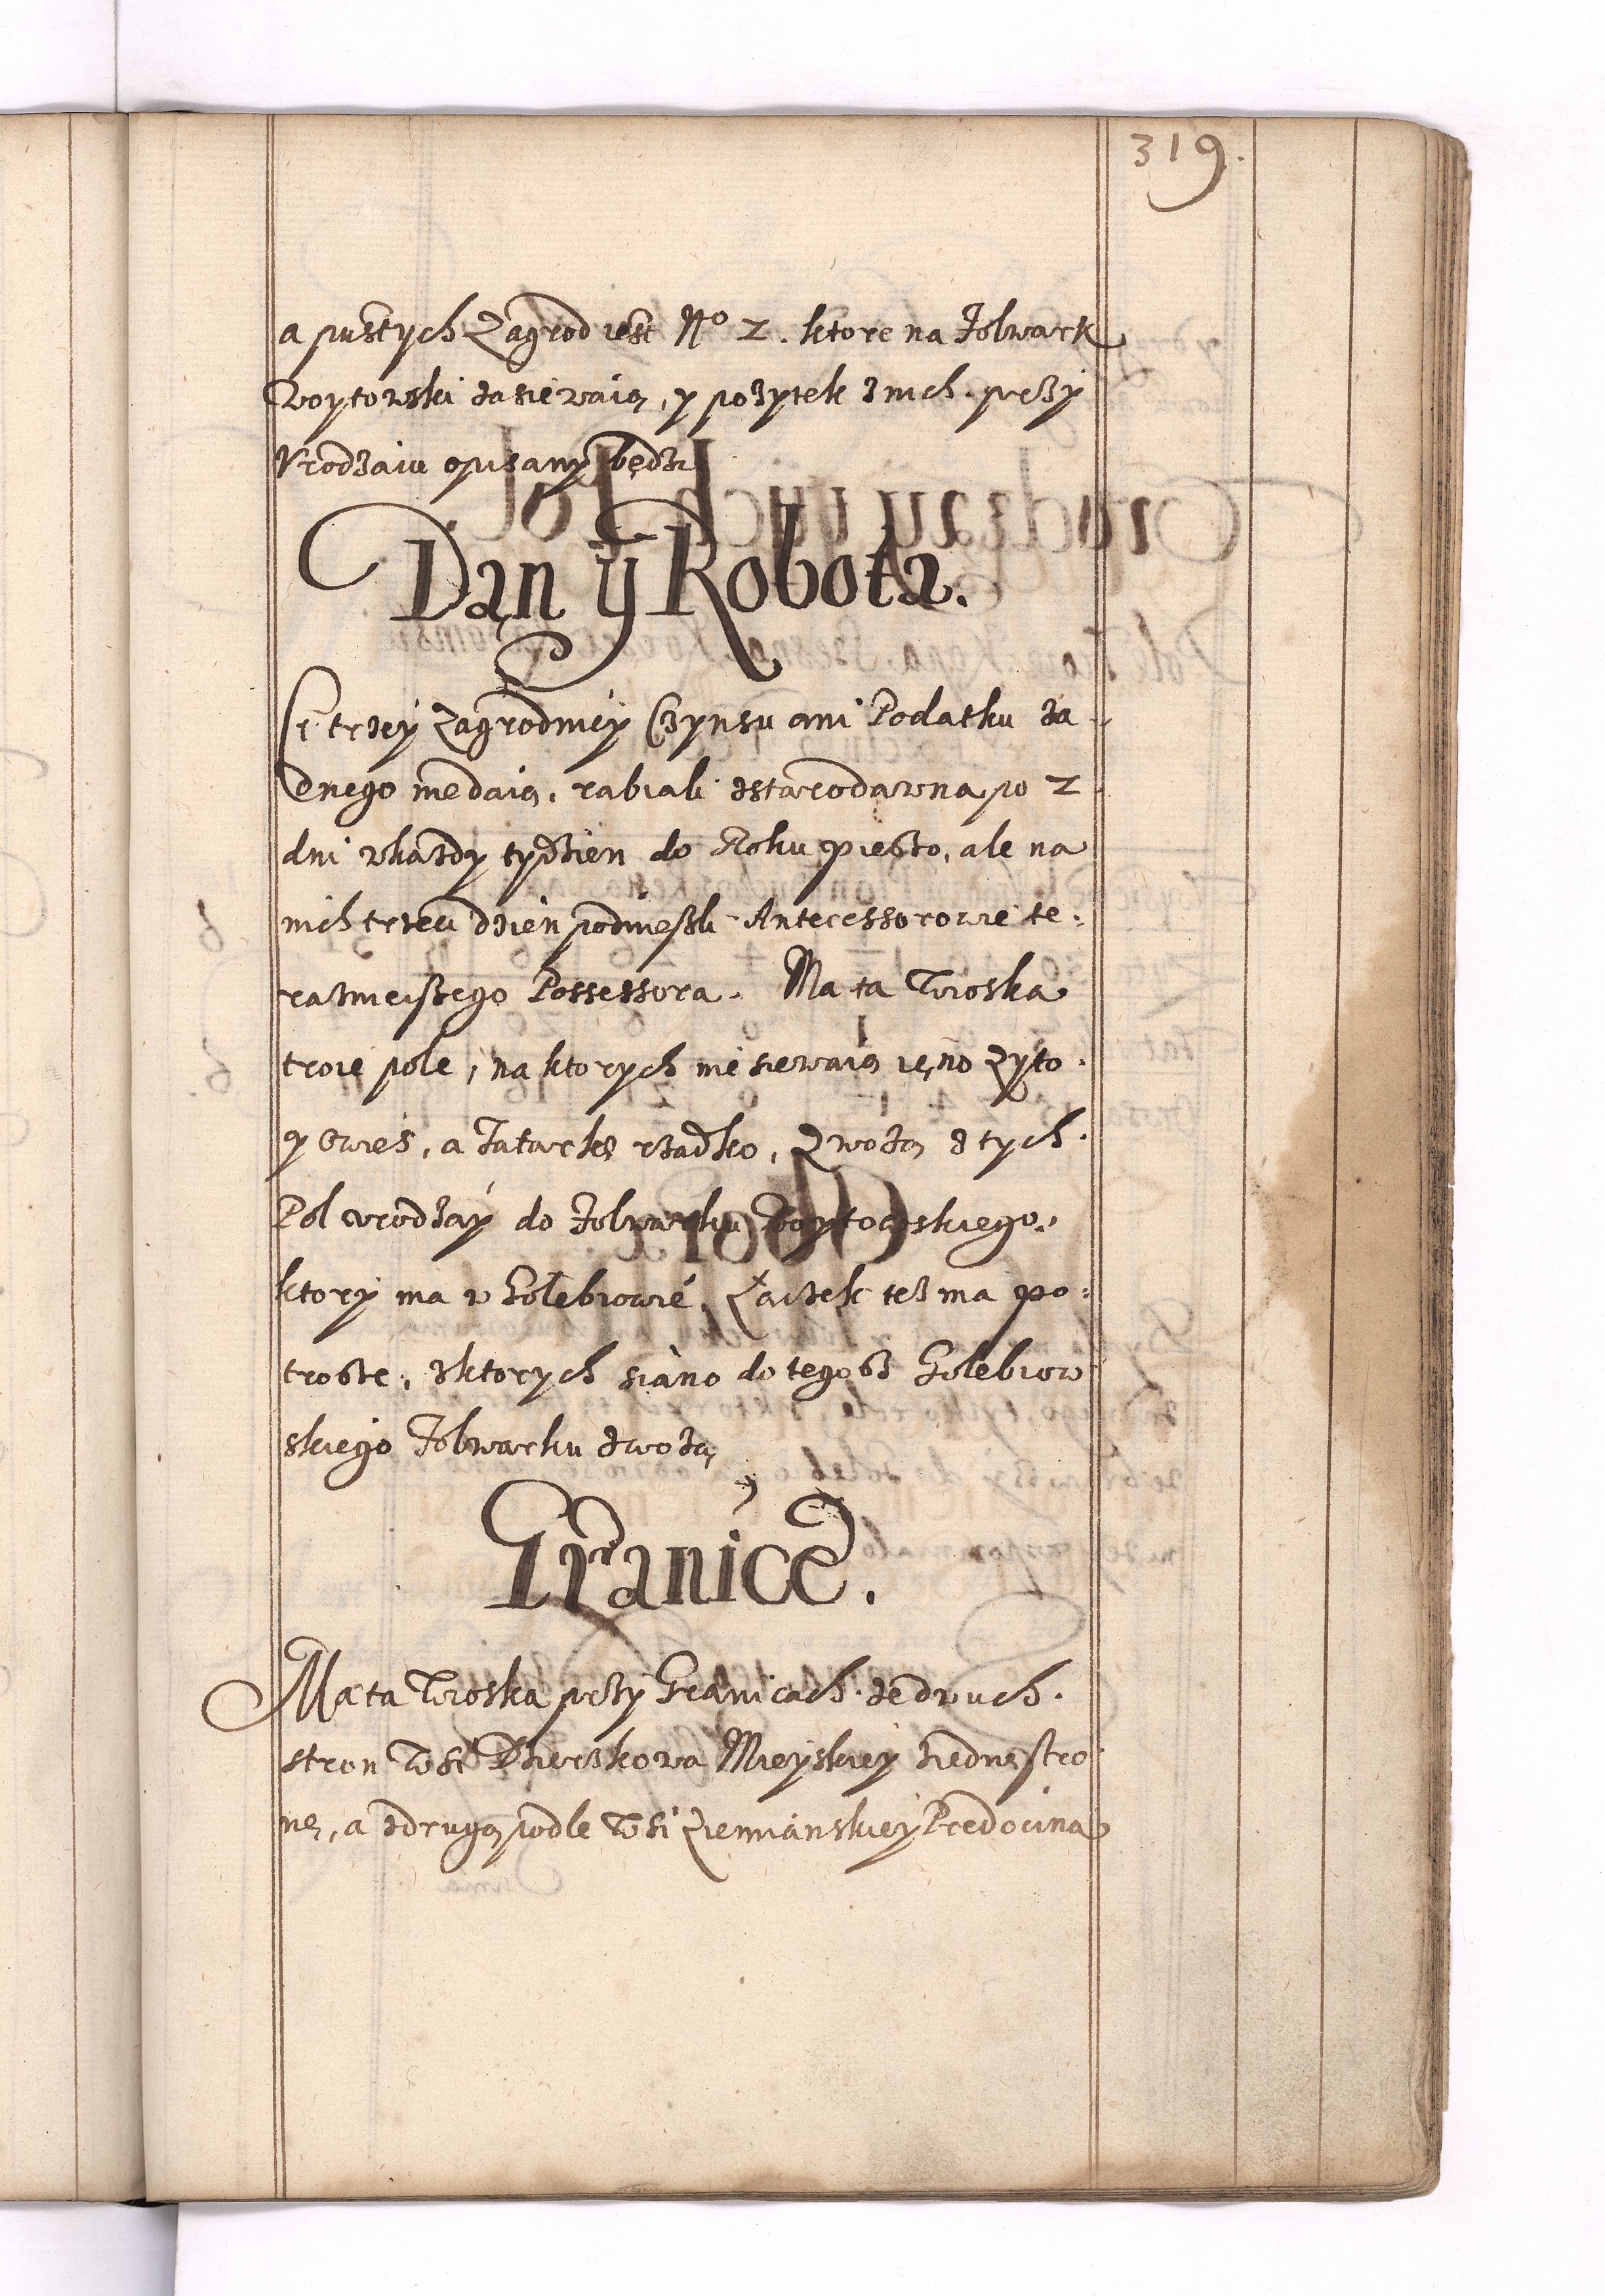 319.
a pustych Zagrod iest No 2. ktore na Folwark
Woytowski zasiewaią, y pożytek z nich przy
Vrodzaiu opisany będzie
Dań y Robota.
Ci trzey Zagrodnicy Czynszu ani Podatku ża-
dnego nie daią, rabiali z starodawna po 2
dni w każdy tydzien do Roku pieszo, ale na
nich trzeci dzien podniesli Antecessorowie te-
raznieiszego Possessora. Ma ta Wioska
troie pole, na ktorych nie siewaią ieno Zyto
y Owies, a Tatarkę rzadko, Zwożą z tych
Pol vrodzay do Folwarku Woytowskiego,
ktory ma w Gołebiowie, Łączek też ma po
trosze, z ktorych siano do tegosz Gołebiow
skiego Folwarku zwożą
Granice.
Ma ta Wioska przy Granicach ze dwuch
stron Wsi Dzierzkowa Mieyskiey z iednę stro
nę, a z drugą podle Wsi Ziemianskiey Prędocina